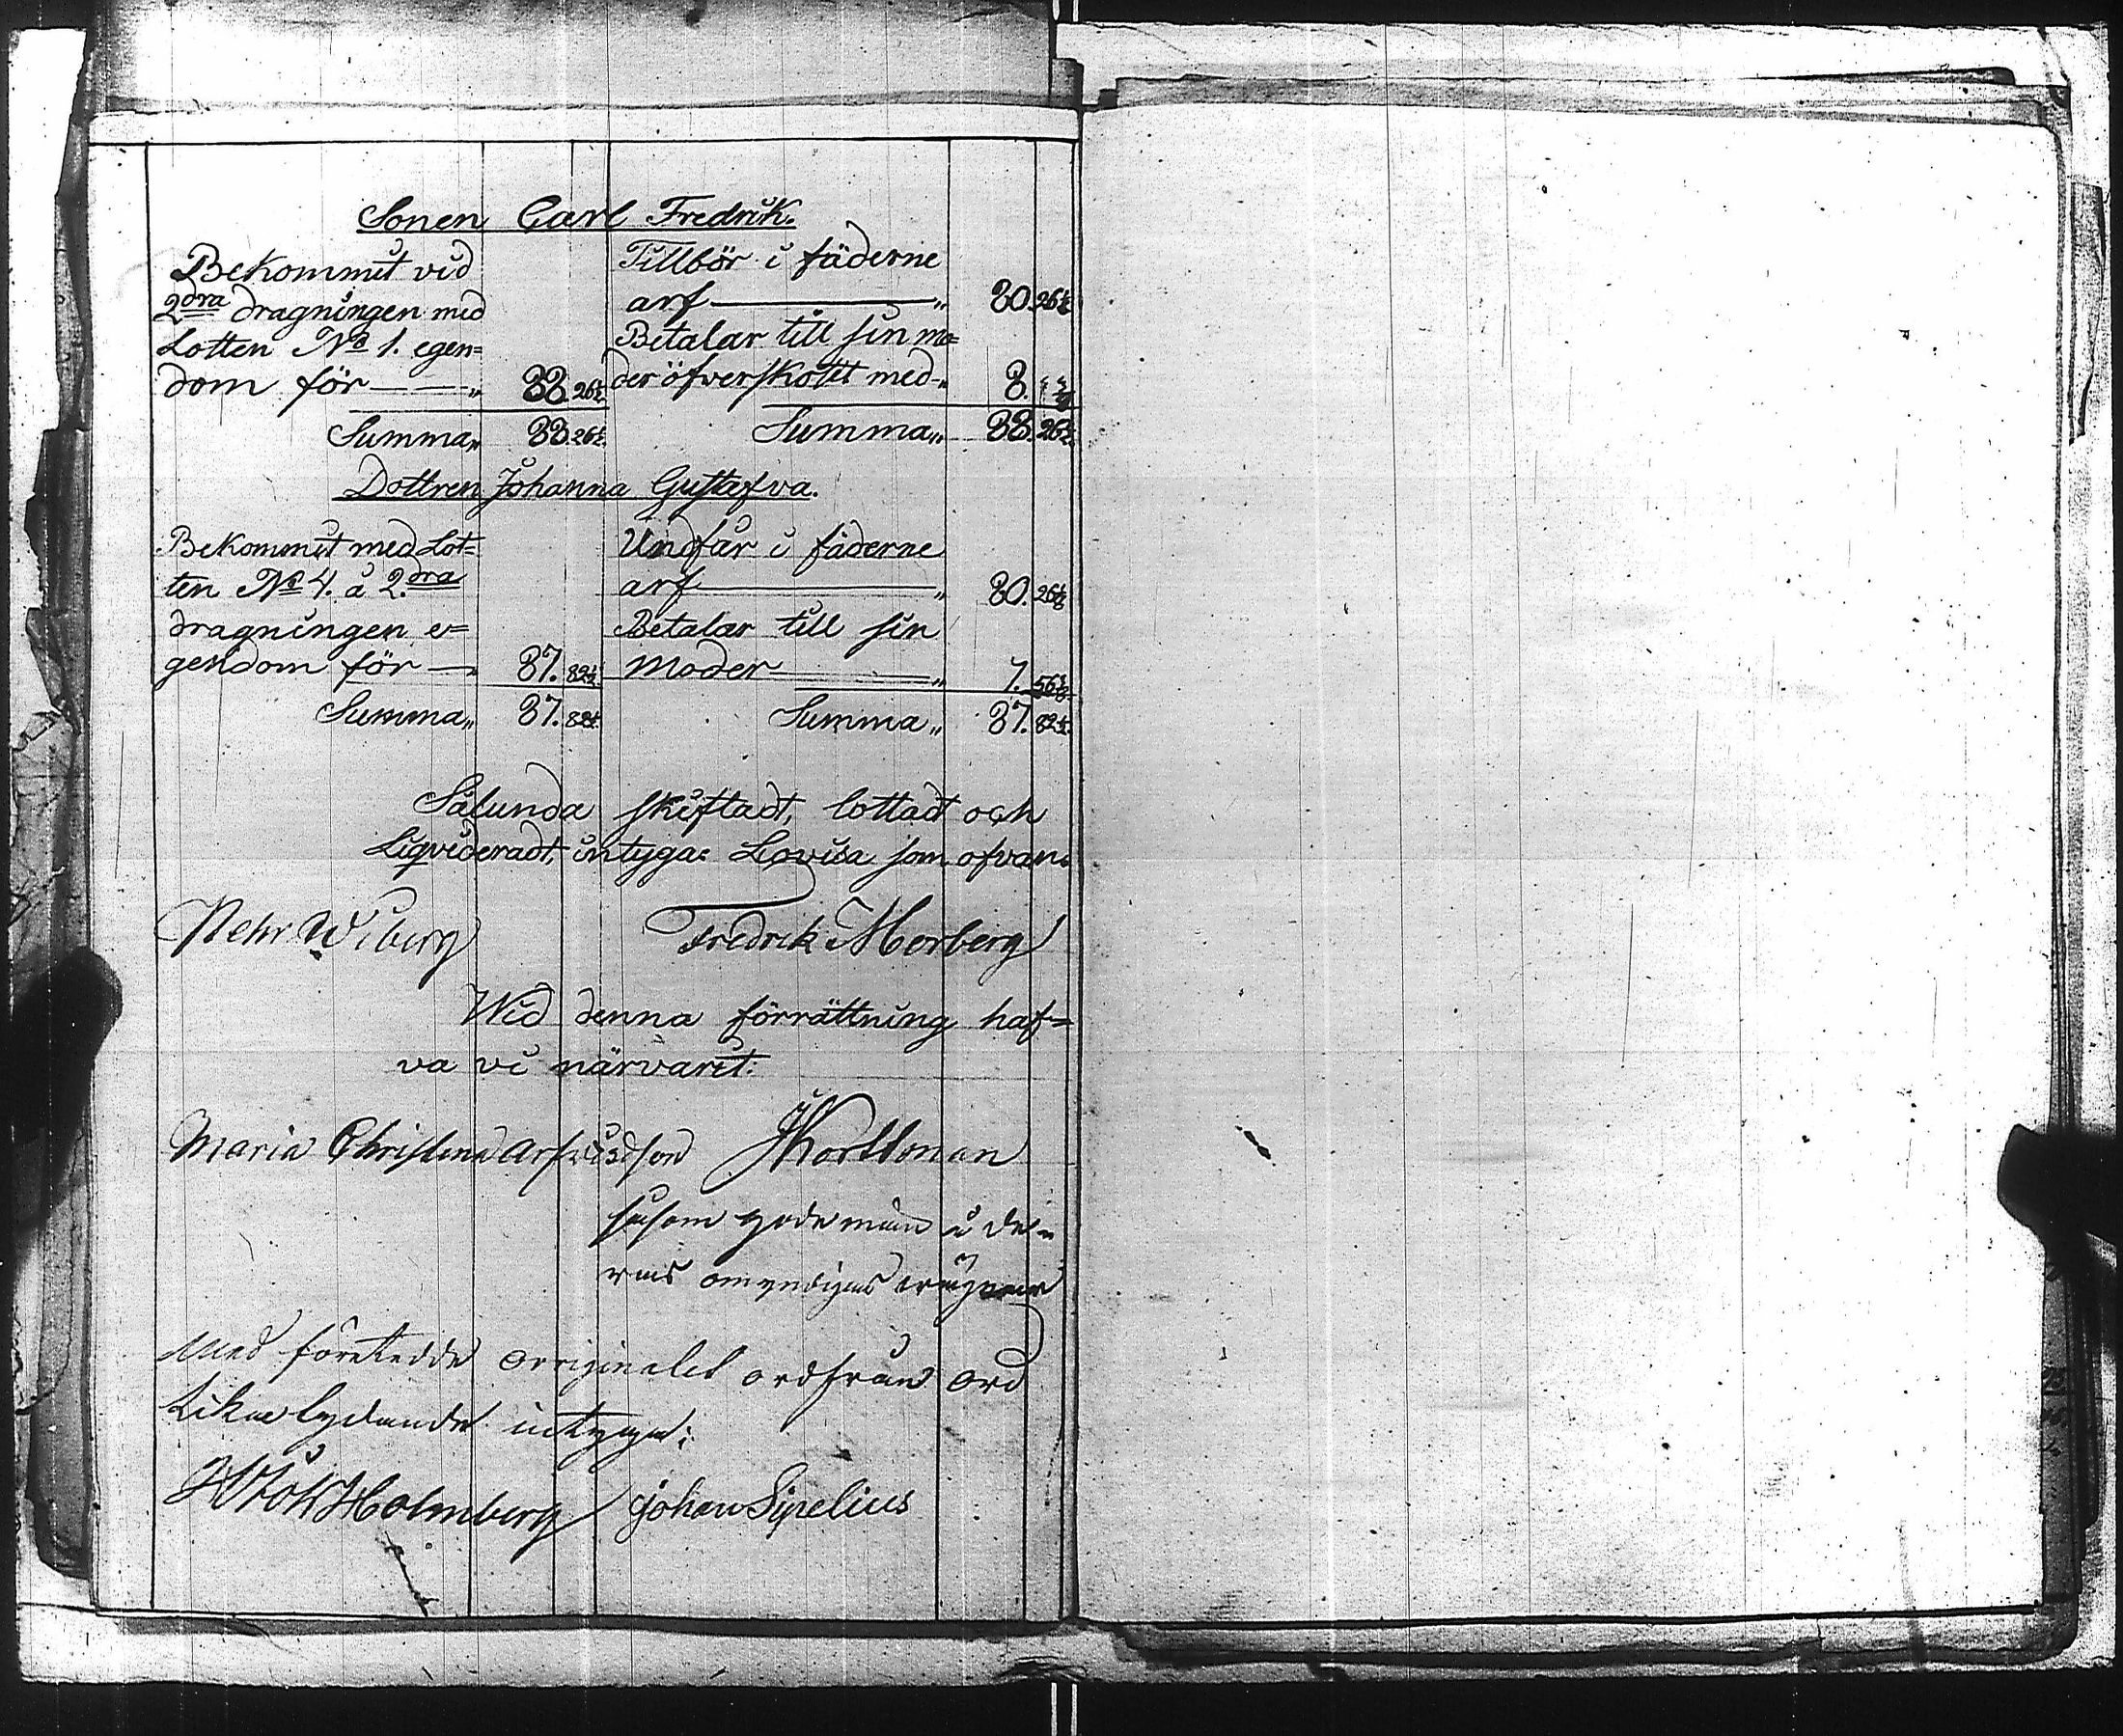 Sonen Carl Fredrik.
Bekommit vid
2dra dragningen med
Lotten No 1. egen=
dom för — — „ 38. 26½
Summa „ 38. 26½.
Tillbör i fäderne
arf — „ 30. 26½
Betalar till sin mo=
der öfverskottet med „ 8. „ „
Summa „ 38. 26½.
Dottren Johanna Gustafva.
Bekommit med Lot=
ten No 4. å 2.dra
dragningen e=
gendom för — „ 37. 82½.
Summa „ 37. 82½.
Undfår i fäderne
arf — „ 30. 26½
Betalar till sin
moder — „ 7. 56
Summa „ 37. 82½.
Sålunda skiftadt, lottadt och
Liqvideradt, intyga: Lovisa som ofvan.
Pehr Wiberg Fredrik Morberg
Wid denna förrättning haf=
va vi närvarit:
Maria Christina Arfvidson J Korttman
såsom gode man å de=
ras omyndigas vägnar
Med företedde originalet ord från ord
Lika lydande intyga;
Holmberg Johan Sipelius